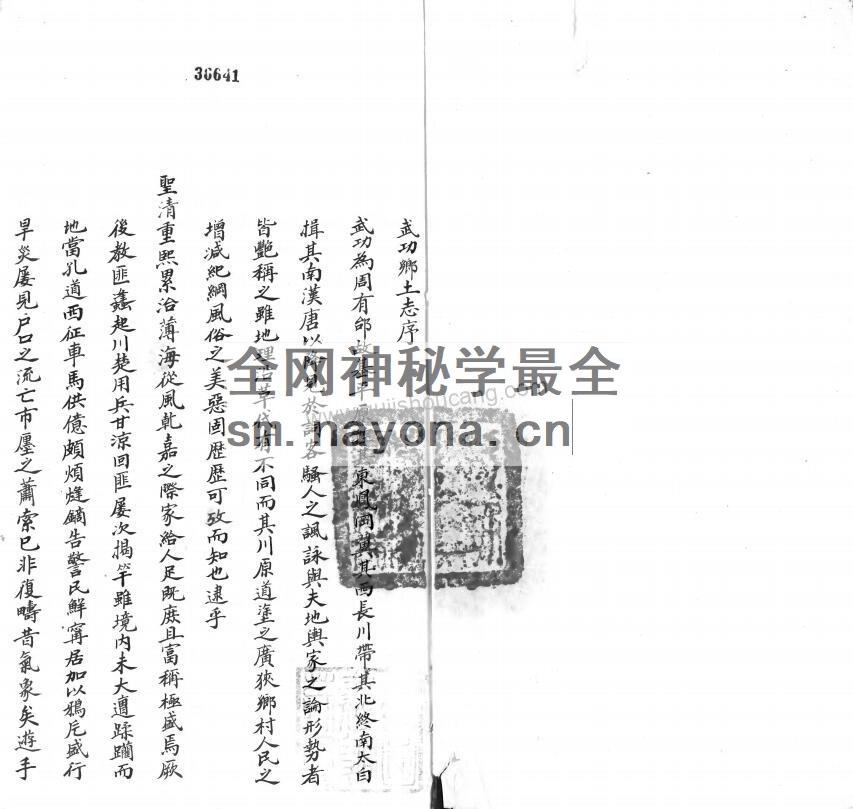 36641
武功鄉土志序
武功為周有邰故東鳳岡冀其西長川帶其北終南太白
揖其南漢唐以降見於詞客騷人之諷詠與夫地輿家之論形勢者
皆艷稱之雖地理沿革代有不同而其川原道塗之廣狹鄉村人民之
增減紀綱風俗之美惡固歷歷可攷而知也逮乎
聖清重熙累洽薄海從風乾嘉之際家給人足既庶且富稱極盛焉厥
後教匪蠭起川楚用兵甘涼回匪屢次揭竿雖境內未大遭蹂躪而
地當孔道西征車馬供億頗煩燧鏑告警民鮮甯居加以鴉片盛行
旱災屢見戶口之流亡市廛之蕭索已非復疇昔氣象矣遊手
全网神秘学最全
sm.nayona.cn